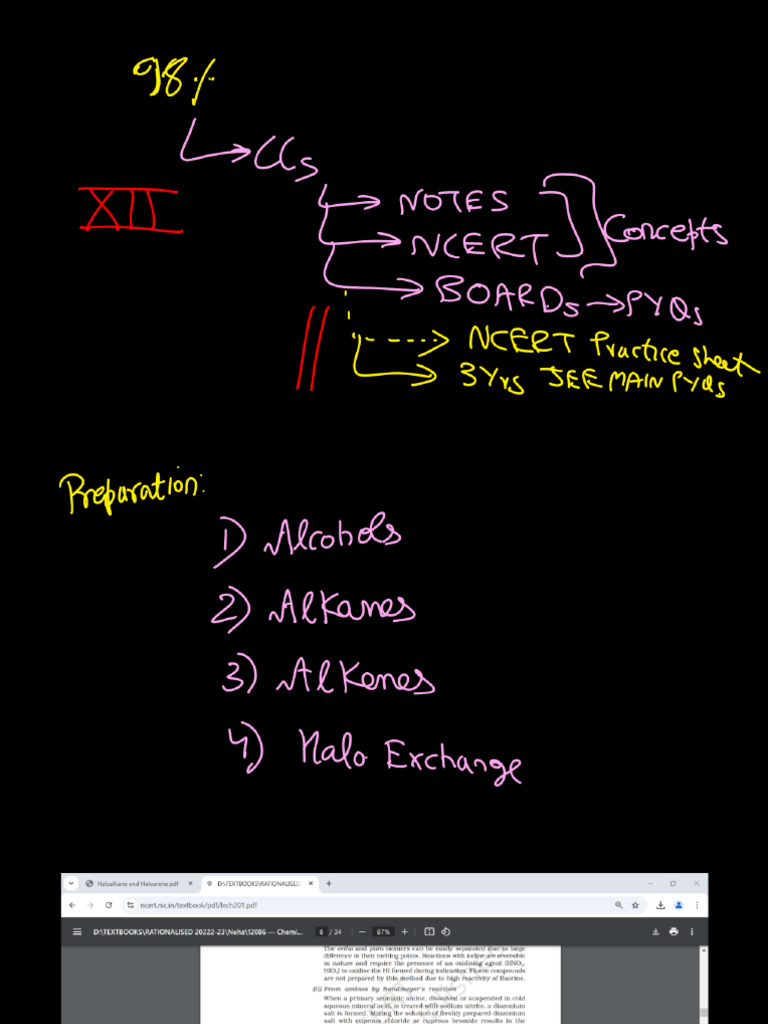 98%
XII
NOTES
NCERT
Concepts
BOARDs → PYQs
NCERT Practice sheet
3Yrs JEE MAIN PYQs
Preparation:
1) Alcohols
2) Alkanes
3) Alkenes
4) Halo Exchange
Haloalkane and Haloarene.pdf
D:\TEXTBOOKS\RATIONALISED
ncert.nic.in/textbook/pdf/lech201.pdf
D:\TEXTBOOKS\RATIONALISED 20222-23\Neha\12086 — Chemi...
8 / 34
87%
The ortho and para isomers can be easily separated due to large
difference in their melting points. Reactions with iodine are reversible
in nature and require the presence of an oxidising agent (HNO₃,
HIO₄) to oxidise the HI formed during iodination. Fluoro compounds
are not prepared by this method due to high reactivity of fluorine.
(ii) From amines by Sandmeyer's reaction
When a primary aromatic amine, dissolved or suspended in cold
aqueous mineral acid, is treated with sodium nitrite, a diazonium
salt is formed. Mixing the solution of freshly prepared diazonium
salt with cuprous chloride or cuprous bromide results in the